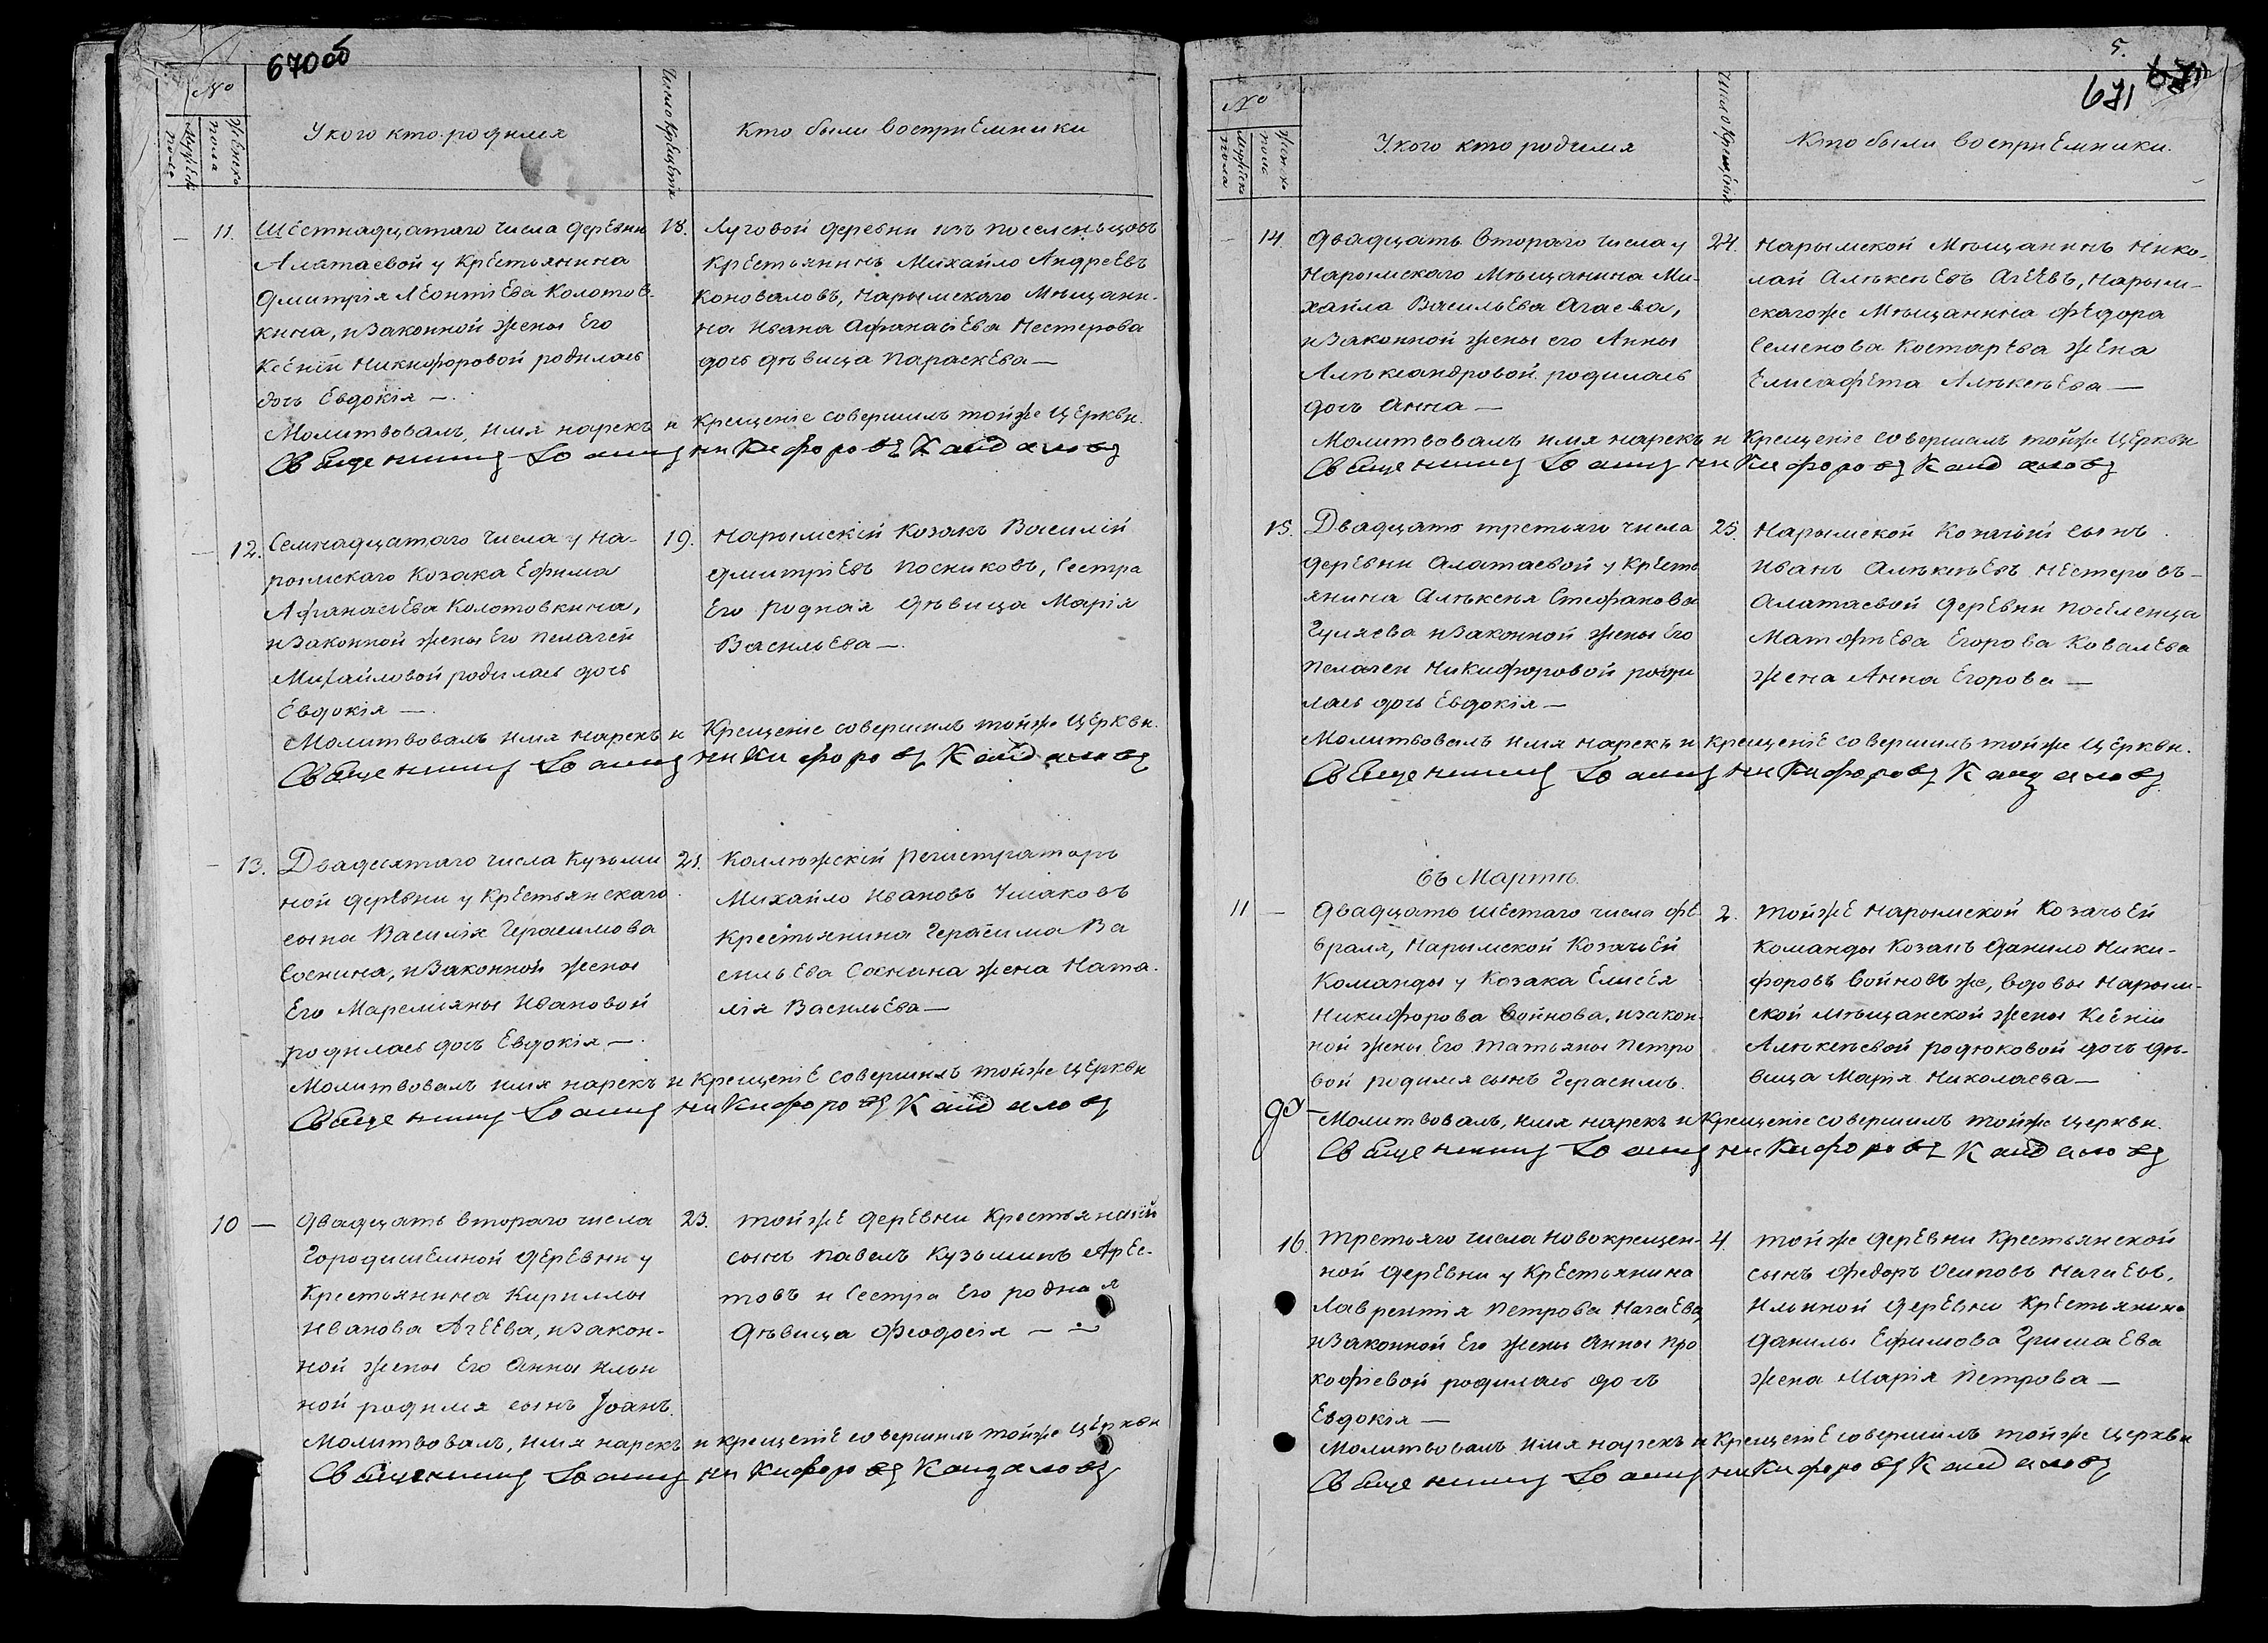 670об
№
Мужеска пола
Женска пола
У кого кто родился
Число крещенія
Кто были воспріемники
11.
Шестнадцатаго числа деревни
Алатаевой у крестьянина
Дмитрія Леонтіева Колотов-
кина, и законной жены его
Ксеніи Никифоровой родилась
дочь Евдокія —.
18.
Луговой деревни изъ поселеньцовъ
крестьянинъ Михайло Андреевъ
Коноваловъ, Нарымскаго мѣщани-
на Ивана Афанасіева Нестерова
дочь дѣвица Параскева —
Молитвовалъ, имя нарекъ и крещеніе совершилъ тойже церкви.
Священникъ Іоаннъ Никифоровъ Кайдаловъ
12.
Семнадцатаго числа у На-
рымскаго козака Ефима
Афанасіева Колотовкина,
и законной жены его Пелагеи
Михайловой родилась дочь
Евдокія —.
19.
Нарымскій козакъ Василій
Дмитріевъ Посниковъ, сестра
его родная дѣвица Марія
Васильева —.
Молитвовалъ имя нарекъ и крещеніе совершилъ тойже церкви.
Священникъ Іоаннъ Никифоровъ Кайдаловъ
13.
Двадесятаго числа Кузьми
ной деревни у крестьянскаго
сына Василія Герасимова
Соснина, и законной жены
его Маремияны Ивановой
родилась дочь Евдокія —.
21.
Коллѣжскій регистраторъ
Михайло Ивановъ Чмаковъ
крестьянина Герасима Ва
сильева Соснина жена Ната-
лія Васильева —
Молитвовалъ имя нарекъ и крещеніе совершилъ тойже церкви
Священникъ Іоаннъ Никифоровъ Кайдаловъ
10 —
Двадцать втораго числа
Городищенской деревни у
крестьянина Кириллы
Иванова Агеева, и закон-
ной жены его Анны Ильи
ной родился сынъ Іоанъ.
23.
тойже деревни крестьянскій
сынъ Павелъ Кузьминъ Арес-
товъ и сестра его родная
дѣвица Феодосія —
Молитвовалъ, имя нарекъ и крещеніе совершилъ тойже церкви
Священникъ Іоаннъ Никифоровъ Кайдаловъ
5.
671
№
Мужеска пола
Женска пола
У кого кто родился
Число крещенія
Кто были воспріемники.
14.
Двадцать втораго числа у
Нарымскаго мѣщанина Ми-
хайла Васильева Агаева,
и законной жены его Анны
Алѣксандровой родилась
дочь Анна —
24.
Нарымской мѣщанинъ Нико-
лай Алѣксѣевъ Агеевъ, Нарым-
скагоже мѣщанина Федора
Семенова Костарева жена
Елисафета Алѣксѣева —
Молитвовалъ имя нарекъ и крещеніе совершилъ тойже церкви
Священникъ Іоаннъ Никифоровъ Кайдаловъ
15.
Двадцать третьяго числа
деревни Алатаевой у кресть
янина Алѣксѣя Стефанова
Гуляева и законной жены его
Пелагеи Никифоровой роди
лась дочь Евдокія —
25.
Нарымской козачій сынъ
Иванъ Алѣксѣевъ Нестеровъ —
Алатаевой деревни поселенца
Матфѣева Егорова Ковалева
жена Анна Егорова —
Молитвовалъ имя нарекъ и крещеніе совершилъ тойже церкви.
Священникъ Іоаннъ Никифоровъ Кайдаловъ
Въ Мартѣ.
11 —
Двадцать шестаго числа фе
враля, Нарымской козачьей
команды у козака Елисея
Никифорова Войнова, и закон-
ной жены его Татьяны Петро
вой родился сынъ Герасимъ.
2.
тойже Нарымской козачьей
команды козакъ Данило Ники-
форовъ Войновъ же, вдовы Нарым-
ской мѣщанской жены Ксеніи
Алѣксѣевой Родюковой дочь дѣ-
вица Марія Николаева —
Молитвовалъ, имя нарекъ и крещеніе совершилъ тойже церкви.
Священникъ Іоаннъ Никифоровъ Кайдаловъ
16.
Третьяго числа Новокрещен-
ной деревни у крестьянина
Лаврентія Петрова Нагаева,
и законной его жены Анны Про
кофіевой родилась дочь
Евдокія —
4.
тойже деревни крестьянской
сынъ Федоръ Осиповъ Нагаевъ,
Ильиной деревни крестьянина
Данилы Ефимова Гришаева
жена Марія Петрова —
Молитвовалъ имя нарекъ и крещеніе совершилъ тойже церкви
Священникъ Іоаннъ Никифоровъ Кайдаловъ